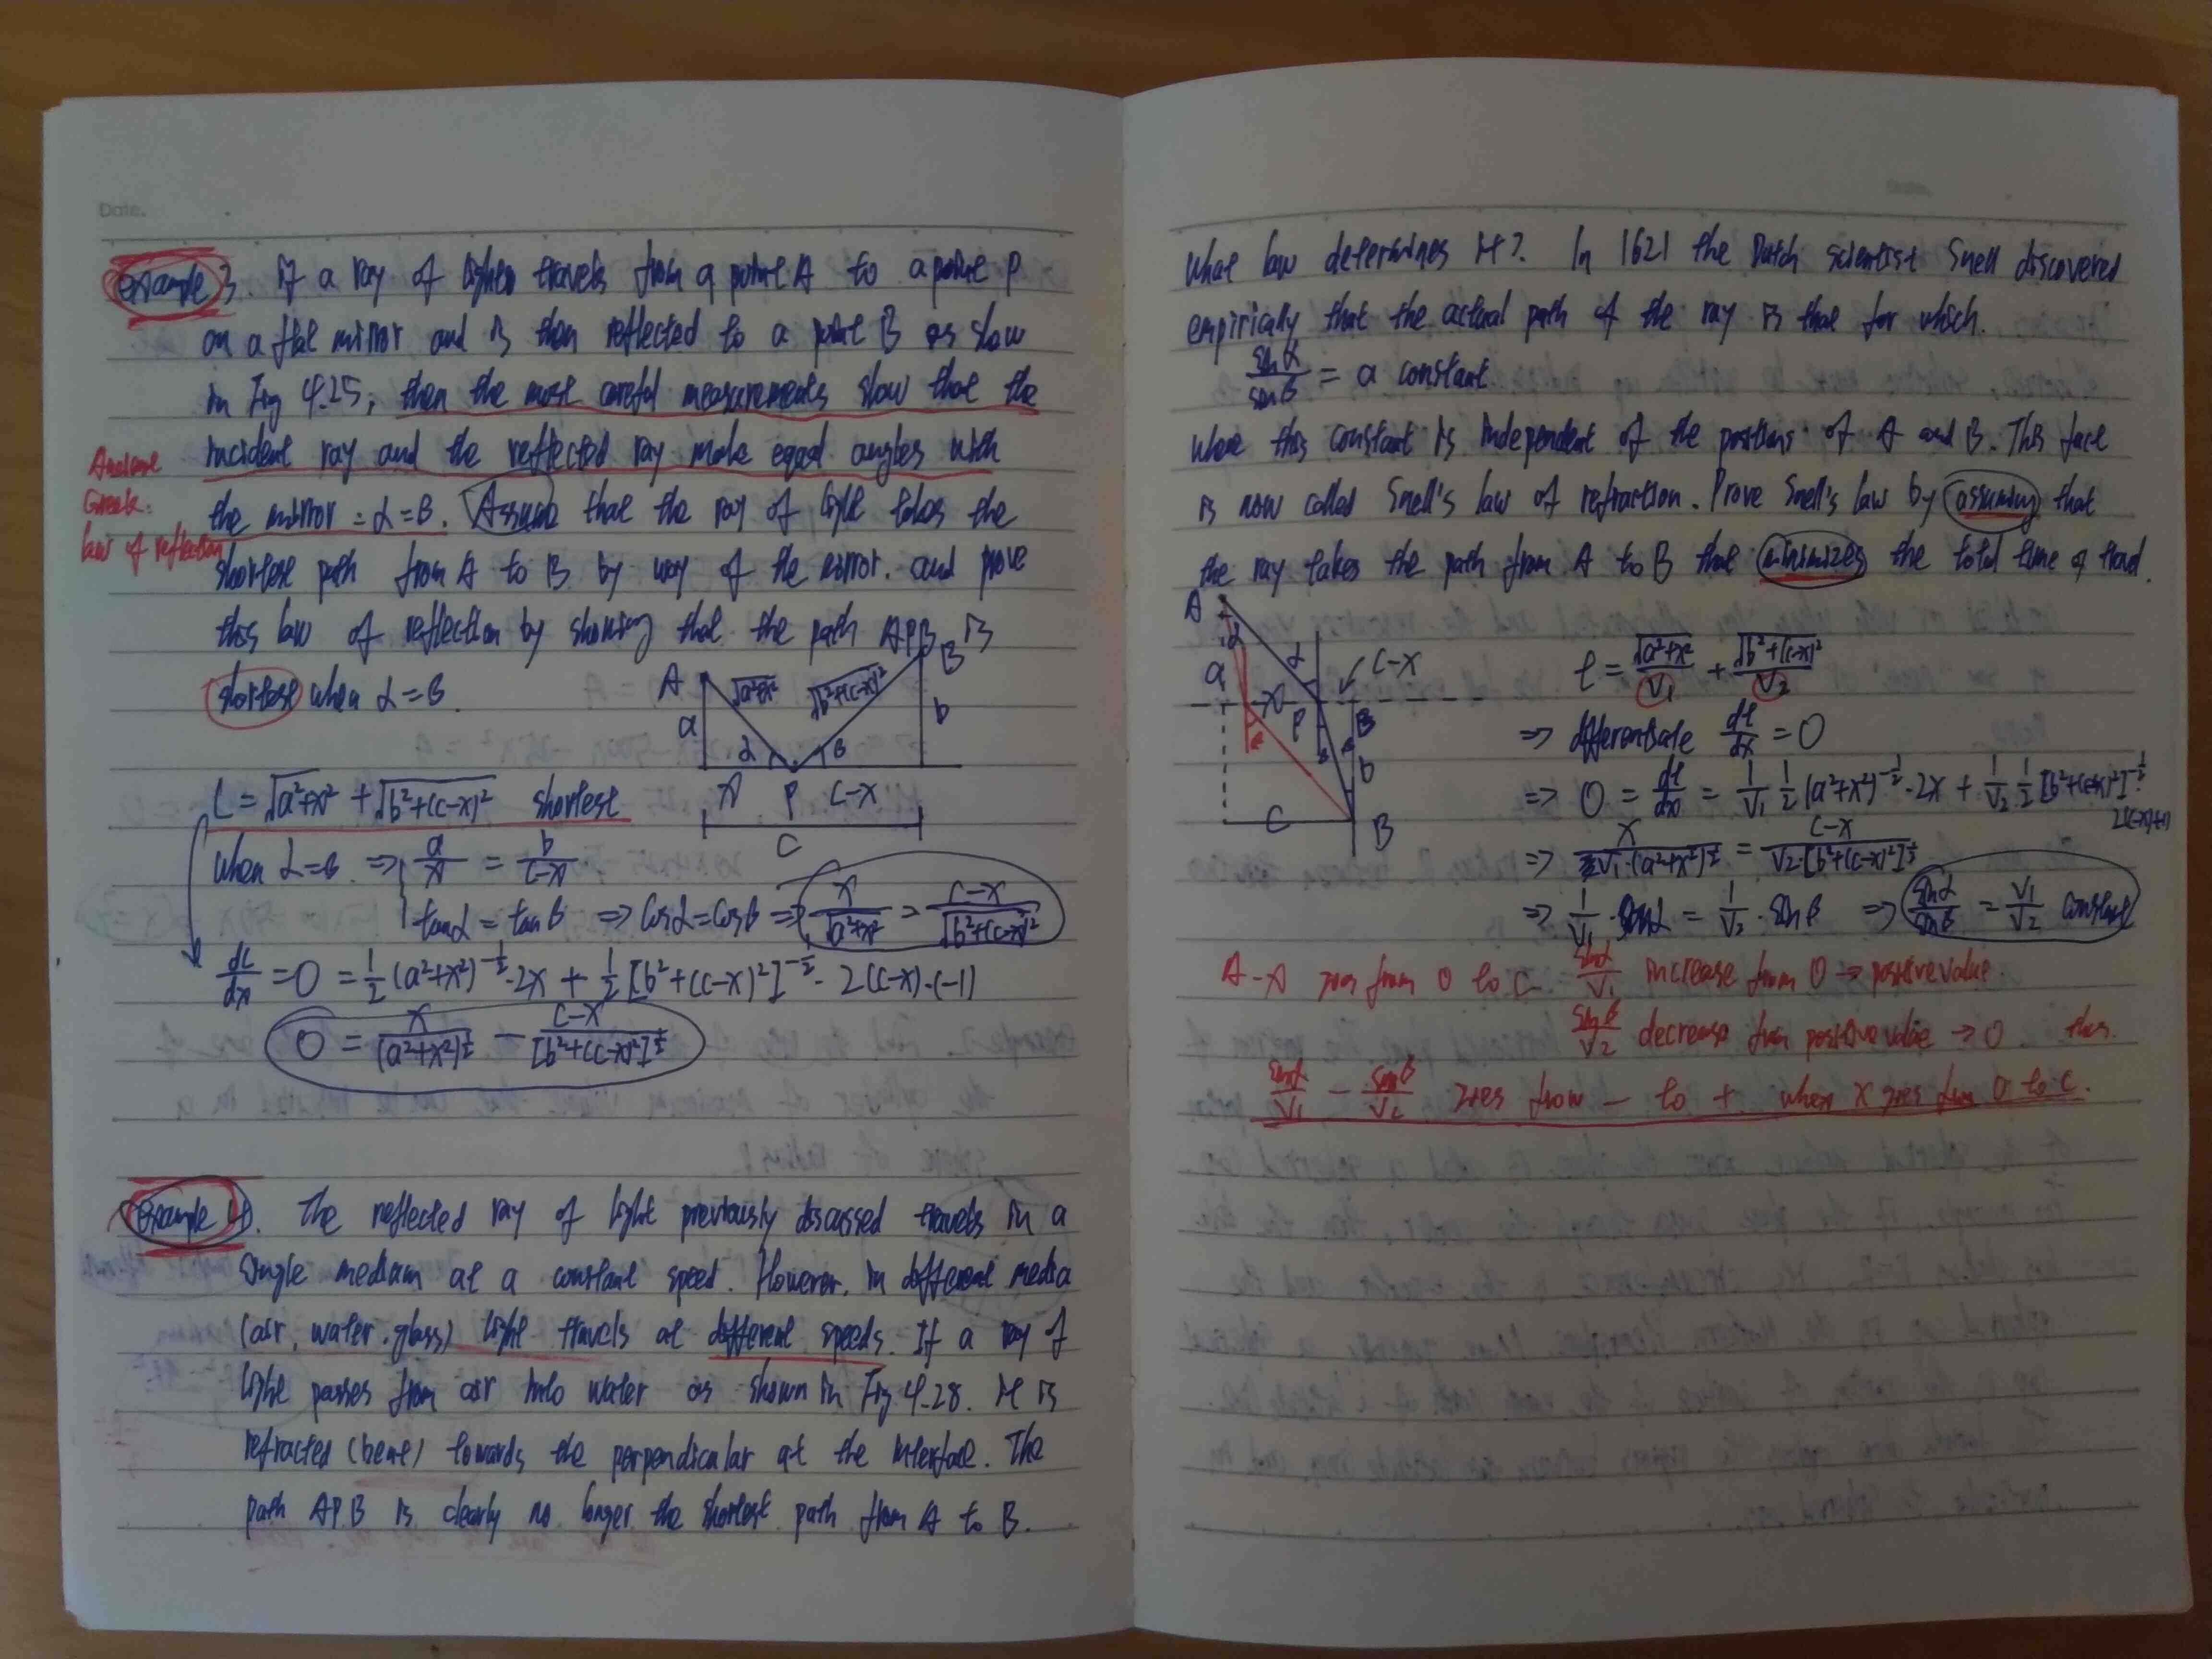 Date.
example 3. If a ray of light travels from a point A to a point P
on a flat mirror and is then reflected to a point B as show
in Fig 4.25, then the most careful measurements show that the
incident ray and the reflected ray make equal angles with
the mirror = α=β. Assume that the ray of light takes the
Greek:
law of reflection
shortest path from A to B by way of the mirror. and prove
this law of reflection by showing that the path APB is
shortest when α=β.
A √a²+x² √b²+(c-x)² B
a b
α β
x P c-x
c
L = √a²+x² + √b²+(c-x)² shortest
when α=β ⇒ a/x = b/(c-x)
tanα = tanβ ⇒ cosα = cosβ ⇒ x/√a²+x² = (c-x)/√b²+(c-x)²
dL/dx = 0 = 1/2 (a²+x²)^-1/2 · 2x + 1/2 [b²+(c-x)²]^-1/2 · 2(c-x)·(-1)
0 = x/(a²+x²)^1/2 - (c-x)/[b²+(c-x)²]^1/2
example 4. The reflected ray of light previously discussed travels in a
single medium at a constant speed. However, in different media
(air, water, glass) light travels at different speeds. If a ray of
light passes from air into water as shown in Fig 4.28. It is
refracted (bent) towards the perpendicular at the interface. The
path APB is clearly no longer the shortest path from A to B.
What law determines it? In 1621 the Dutch scientist Snell discovered
empirically that the actual path of the ray is that for which.
sinα/sinβ = a constant
where this constant is independent of the positions of A and B. This fact
is now called Snell's law of refraction. Prove Snell's law by assuming that
the ray takes the path from A to B that minimizes the total time of travel.
A
α α c-x
a x P β
β b
c B
t = √a²+x²/V₁ + √b²+(c-x)²/V₂
⇒ differentiate dt/dx = 0
⇒ 0 = dt/dx = 1/V₁ 1/2 (a²+x²)^-1/2 · 2x + 1/V₂ · 1/2 [b²+(c-x)²]^-1/2 · 2(c-x)(-1)
⇒ x/V₁·(a²+x²)^1/2 = (c-x)/V₂·[b²+(c-x)²]^1/2
⇒ 1/V₁ · sinα = 1/V₂ · sinβ ⇒ sinα/sinβ = V₁/V₂ constant
goes from 0 to c sinα/V₁ increase from 0 → positive value.
sinβ/V₂ decrease from positive value → 0. thus.
sinα/V₁ - sinβ/V₂ goes from - to + when x goes from 0 to c.